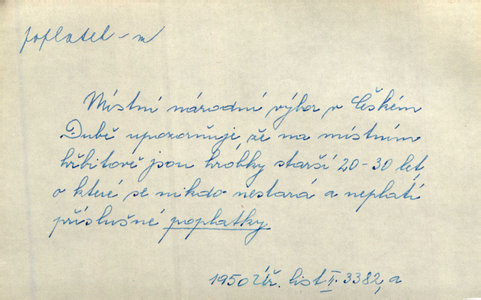 poplatek - m
Místní národní výbor v Českém
Dubě upozorňuje že na místním
hřbitově jsou hrobky starší 20-30 let
o které se nikdo nestará a neplatí
příslušné poplatky.
1950 Úř. list I. 3382, a